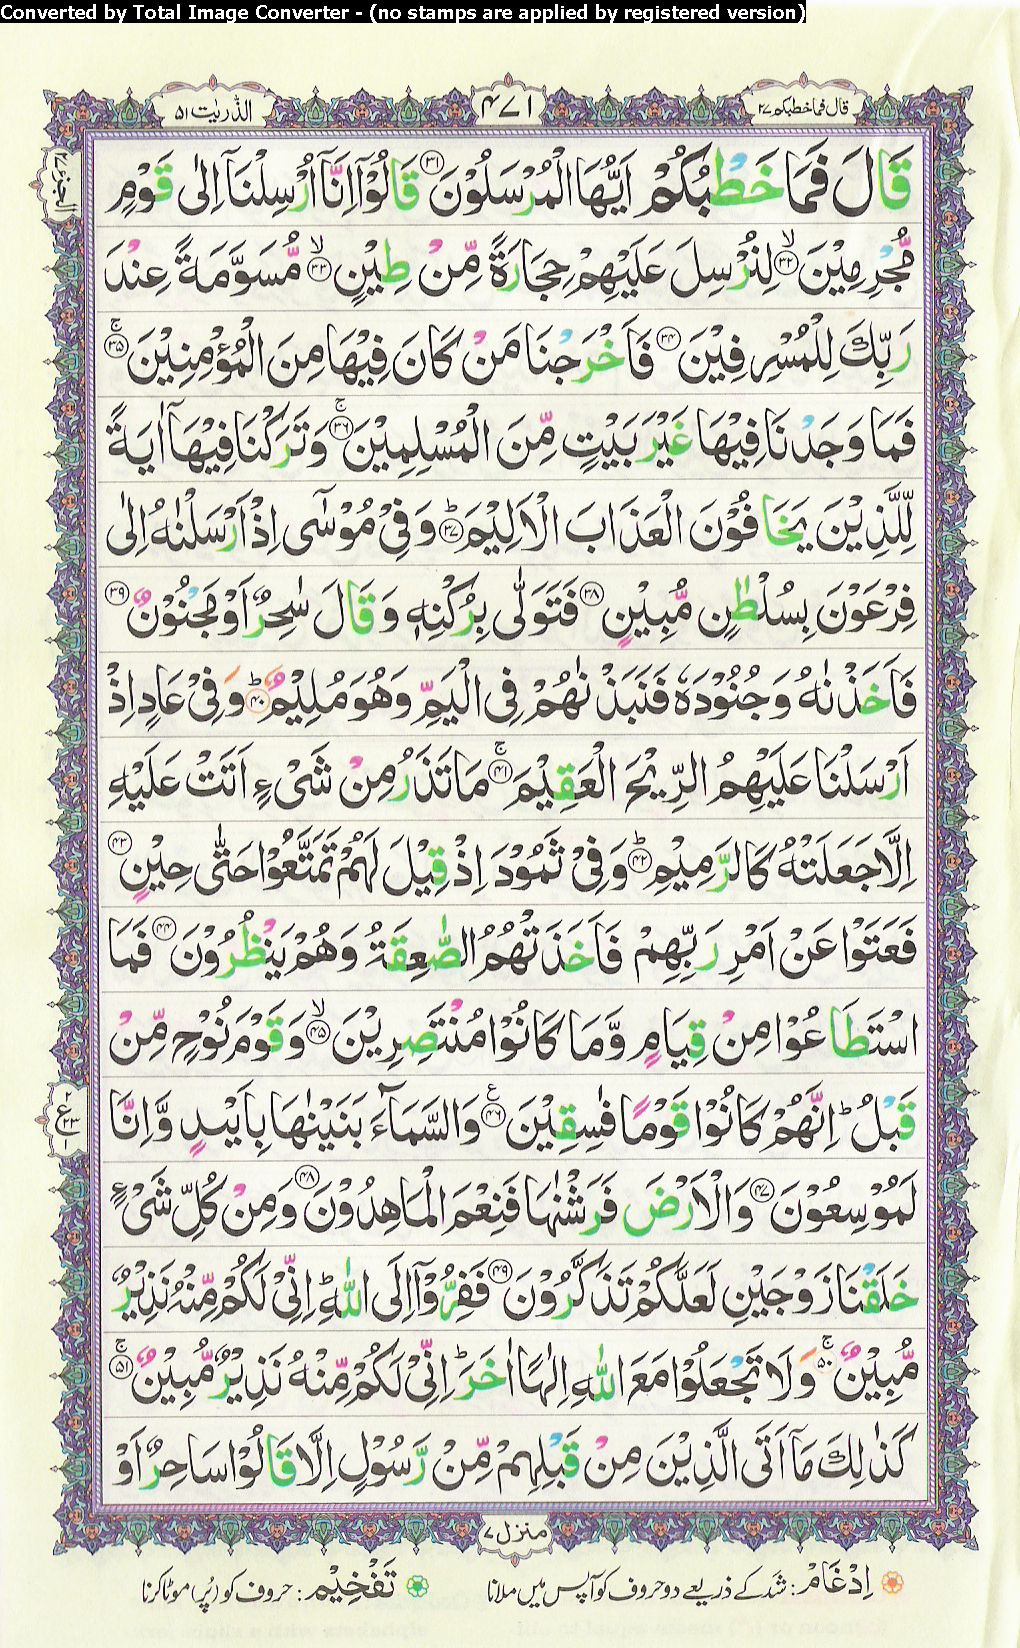 Converted by Total Image Converter - (no stamps are applied by registered version)
قال فما خطبکم ۲۷
۴۷۱
الذّٰریٰت ۵۱
قَالَ فَمَا خَطْبُكُمْ اَیُّهَا الْمُرْسَلُوْنَ ۳۱ قَالُوْۤا اِنَّاۤ اُرْسِلْنَاۤ اِلٰى قَوْمٍ
مُّجْرِمِیْنَ ۙ۳۲ لِنُرْسِلَ عَلَیْهِمْ حِجَارَةً مِّنْ طِیْنٍ ۙ۳۳ مُّسَوَّمَةً عِنْدَ
رَبِّكَ لِلْمُسْرِفِیْنَ ۳۴ فَاَخْرَجْنَا مَنْ كَانَ فِیْهَا مِنَ الْمُؤْمِنِیْنَ ۚ۳۵
فَمَا وَجَدْنَا فِیْهَا غَیْرَ بَیْتٍ مِّنَ الْمُسْلِمِیْنَ ۚ۳۶ وَتَرَكْنَا فِیْهَاۤ اٰیَةً
لِّلَّذِیْنَ یَخَافُوْنَ الْعَذَابَ الْاَلِیْمَ ؕ۳۷ وَفِیْ مُوْسٰۤى اِذْ اَرْسَلْنٰهُ اِلٰى
فِرْعَوْنَ بِسُلْطٰنٍ مُّبِیْنٍ ۳۸ فَتَوَلّٰى بِرُكْنِهٖ وَقَالَ سٰحِرٌ اَوْ مَجْنُوْنٌ ۳۹
فَاَخَذْنٰهُ وَجُنُوْدَهٗ فَنَبَذْنٰهُمْ فِی الْیَمِّ وَهُوَ مُلِیْمٌ ؕ۴۰ وَفِیْ عَادٍ اِذْ
اَرْسَلْنَا عَلَیْهِمُ الرِّیْحَ الْعَقِیْمَ ۚ۴۱ مَا تَذَرُ مِنْ شَیْءٍ اَتَتْ عَلَیْهِ
اِلَّا جَعَلَتْهُ كَالرَّمِیْمِ ؕ۴۲ وَفِیْ ثَمُوْدَ اِذْ قِیْلَ لَهُمْ تَمَتَّعُوْا حَتّٰى حِیْنٍ ۴۳
فَعَتَوْا عَنْ اَمْرِ رَبِّهِمْ فَاَخَذَتْهُمُ الصّٰعِقَةُ وَهُمْ یَنْظُرُوْنَ ۴۴ فَمَا
اسْتَطَاعُوْا مِنْ قِیَامٍ وَّمَا كَانُوْا مُنْتَصِرِیْنَ ۙ۴۵ وَقَوْمَ نُوْحٍ مِّنْ
قَبْلُ ؕ اِنَّهُمْ كَانُوْا قَوْمًا فٰسِقِیْنَ ۴۶ وَالسَّمَآءَ بَنَیْنٰهَا بِاَیْىدٍ وَّاِنَّا
لَمُوْسِعُوْنَ ۴۷ وَالْاَرْضَ فَرَشْنٰهَا فَنِعْمَ الْمَاهِدُوْنَ ۴۸ وَمِنْ كُلِّ شَیْءٍ
خَلَقْنَا زَوْجَیْنِ لَعَلَّكُمْ تَذَكَّرُوْنَ ۴۹ فَفِرُّوْۤا اِلَى اللّٰهِ ؕ اِنِّیْ لَكُمْ مِّنْهُ نَذِیْرٌ
مُّبِیْنٌ ۚ۵۰ وَلَا تَجْعَلُوْا مَعَ اللّٰهِ اِلٰهًا اٰخَرَ ؕ اِنِّیْ لَكُمْ مِّنْهُ نَذِیْرٌ مُّبِیْنٌ ۚ۵۱
كَذٰلِكَ مَاۤ اَتَى الَّذِیْنَ مِنْ قَبْلِهِمْ مِّنْ رَّسُوْلٍ اِلَّا قَالُوْا سَاحِرٌ اَوْ
الجزء ۲۷
۲
ع
۲۳
۱
منزل ۷
اِدْغَام: شَد کے ذریعے دو حروف کو آپس میں ملانا
تَفْخِیْم: حروف کو (پُر) موٹا کرنا